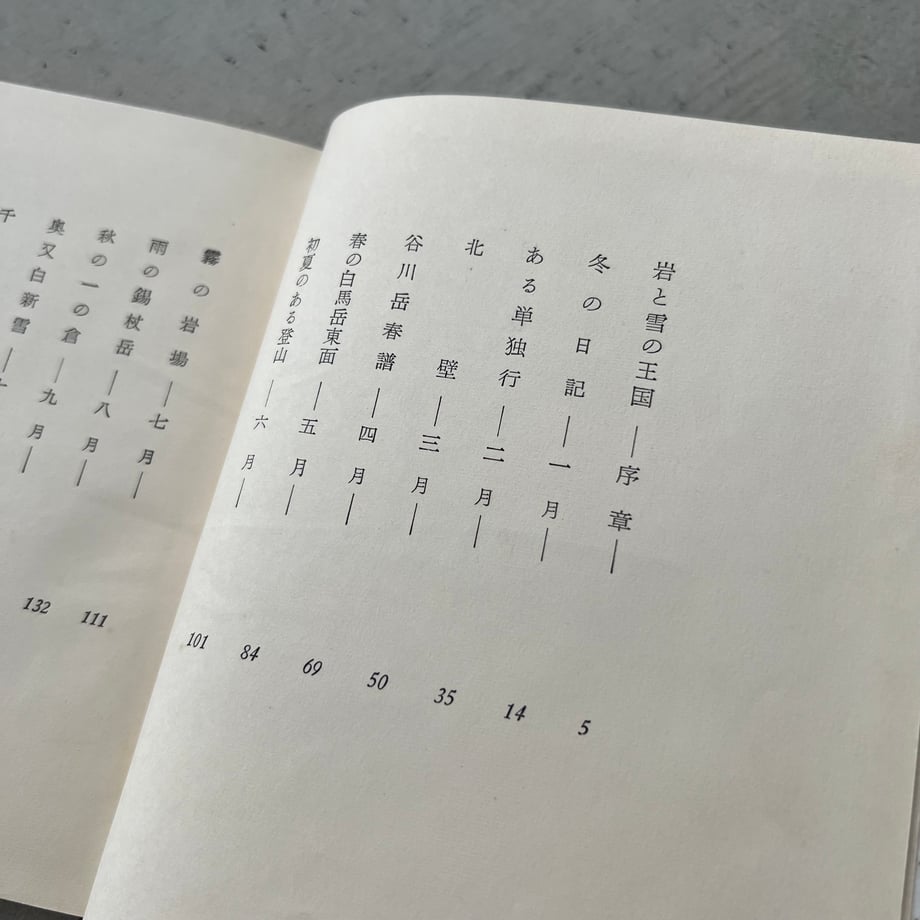 岩と雪の王国 ―序章― 5
冬の日記 ―一月― 14
ある単独行 ―二月― 35
北壁 ―三月― 50
谷川岳春譜 ―四月― 69
春の白馬岳東面 ―五月― 84
初夏のある登山 ―六月― 101
霧の岩場 ―七月― 111
雨の錫杖岳 ―八月― 132
秋の一の倉 ―九月―
奥又白新雪 ―
千